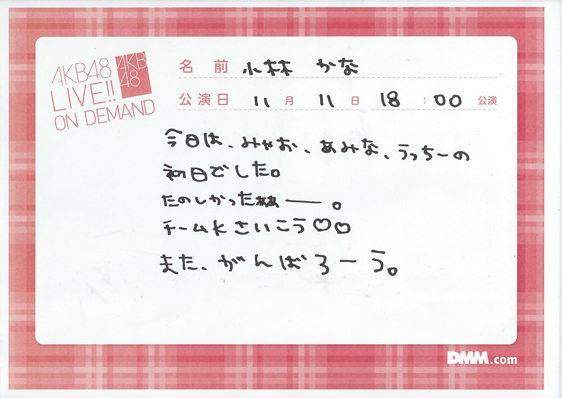 AKB48
LIVE!!
ON DEMAND
AKB
48
名前 小林 かな
公演日 11月 11日 18:00 公演
今日は、みゃお、あみな、うっちーの
初日でした。
たのしかったぁぁー。
チームKさいこう♡♡
また、がんばろーう。
DMM.com